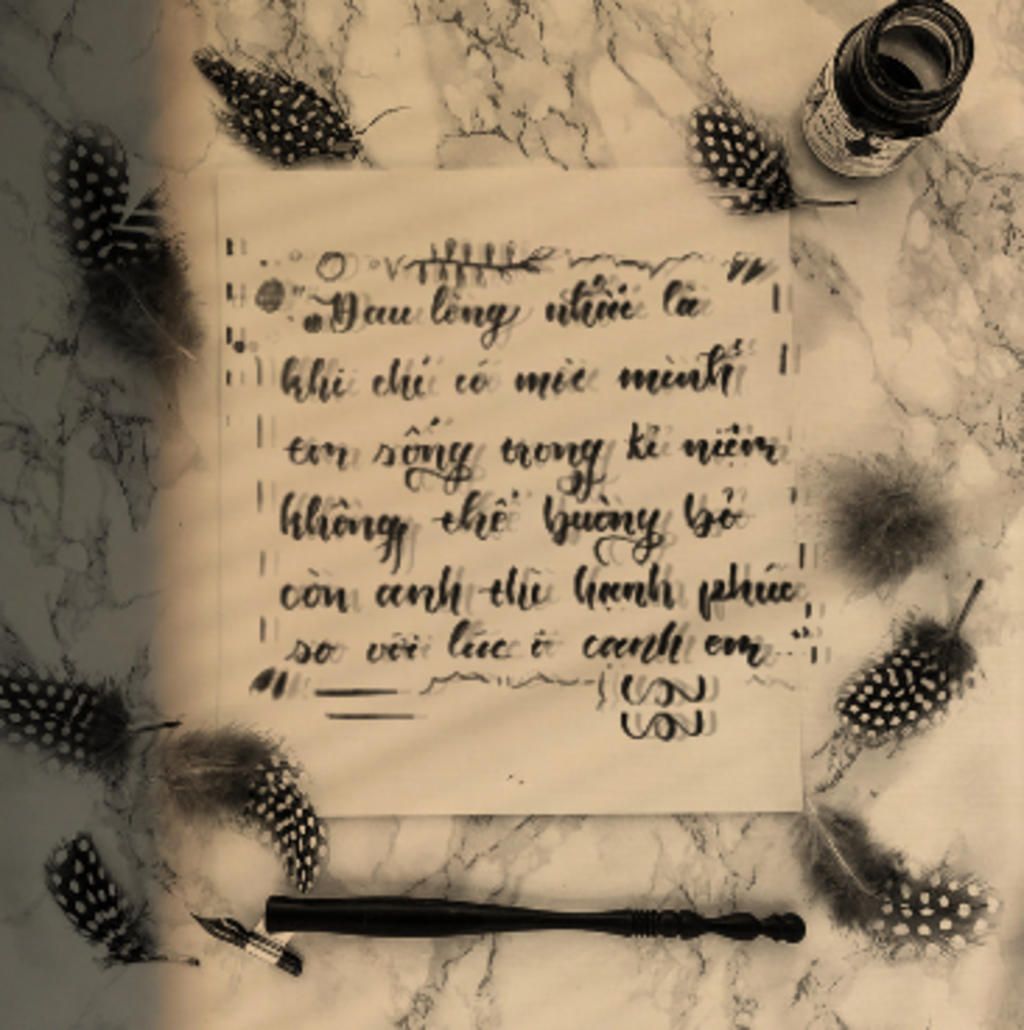 Đau lòng nhất là
khi chỉ có một mình
em sống trong kỉ niệm
không thể buông bỏ
còn anh thì hạnh phúc
so với lúc ở cạnh em